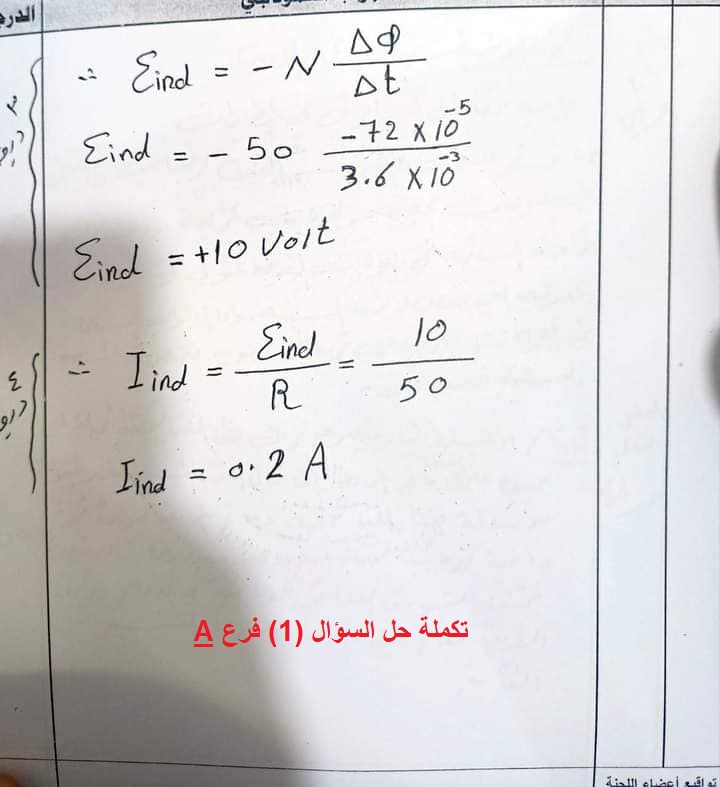 ∴ Ɛind = - N ΔΦ / Δt
Ɛind = - 50 -72 × 10^-5 / 3.6 × 10^-3
Ɛind = +10 Volt
∴ Iind = Ɛind / R = 10 / 50
Iind = 0.2 A
تكملة حل السؤال (1) فرع A
تواقيع أعضاء اللجنة